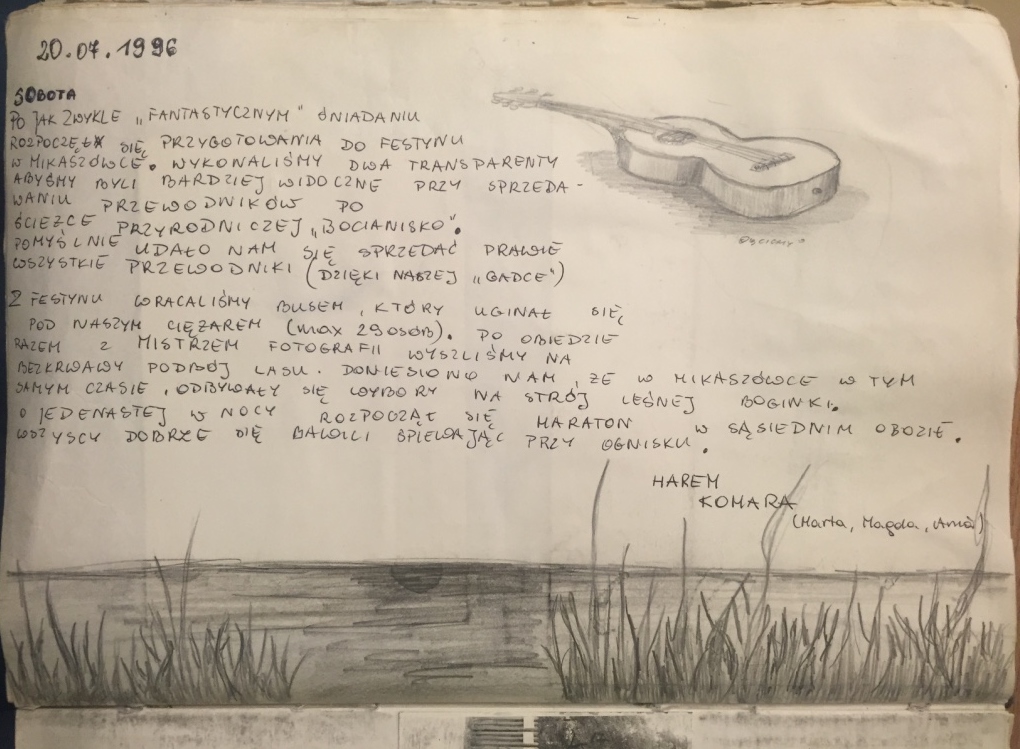 20.07.1996
SOBOTA
PO JAK ZWYKLE „FANTASTYCZNYM" ŚNIADANIU
ROZPOCZĘŁY SIĘ PRZYGOTOWANIA DO FESTYNU
W MIKASZÓWCE. WYKONALIŚMY DWA TRANSPARENTY
ABYŚMY BYLI BARDZIEJ WIDOCZNE PRZY SPRZEDA-
WANIU PRZEWODNIKÓW PO
ŚCIEŻCE PRZYRODNICZEJ „BOCIANISKO".
POMYŚLNIE UDAŁO NAM SIĘ SPRZEDAĆ PRAWIE
WSZYSTKIE PRZEWODNIKI (DZIĘKI NASZEJ „GADCE")
Z FESTYNU WRACALIŚMY BUSEM, KTÓRY UGINAŁ SIĘ
POD NASZYM CIĘŻAREM (max 29 osób). PO OBIEDZIE
RAZEM Z MISTRZEM FOTOGRAFII WYSZLIŚMY NA
BEZKRWAWY PODBÓJ LASU. DONIESIONO NAM, ŻE W MIKASZÓWCE W TYM
SAMYM CZASIE, ODBYWAŁY SIĘ WYBORY NA STRÓJ LEŚNEJ BOGINKI.
O JEDENASTEJ W NOCY ROZPOCZĄŁ SIĘ MARATON W SĄSIEDNIM OBOZIE.
WSZYSCY DOBRZE SIĘ BAWILI ŚPIEWAJĄC PRZY OGNISKU.
HAREM
KOMARA
(Marta, Magda, Ania)